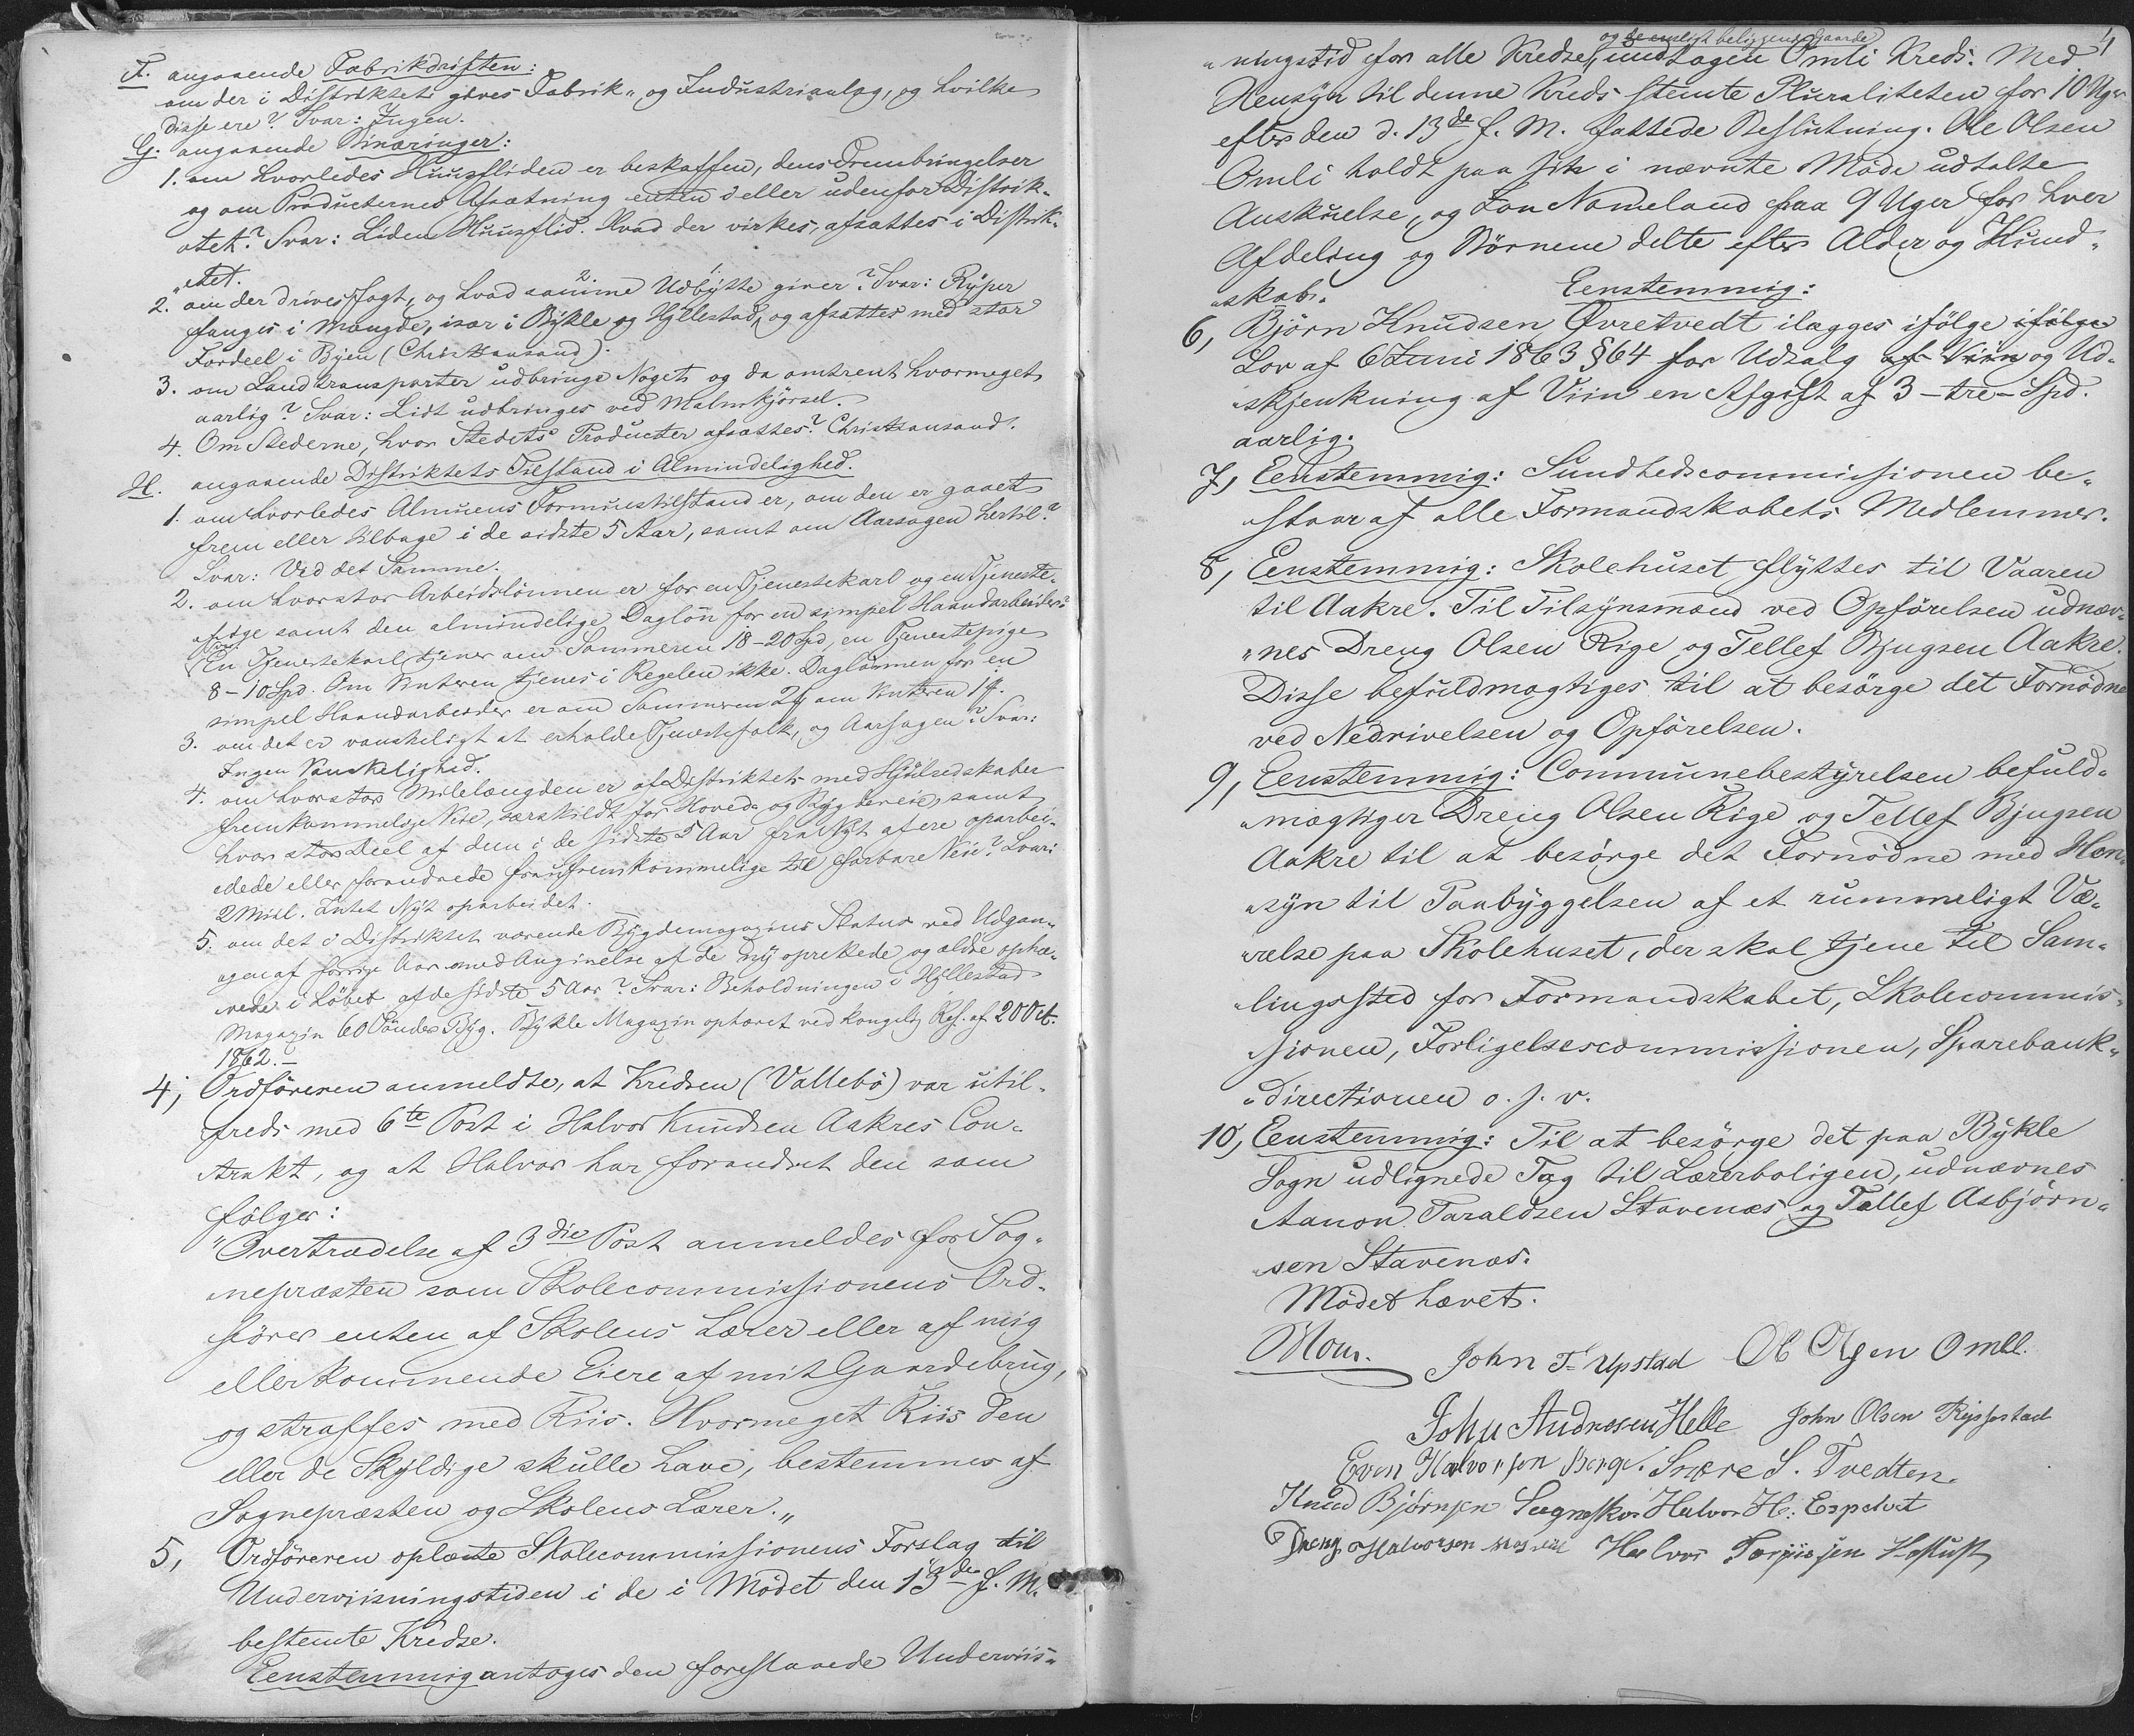 F. angaaende Fabrikdriften:
om der i Distriktet gives Fabrik- og Industrianlæg, og hvilke
disse ere? Svar: Ingen.
G. angaaende Binæringer:
1. om hvorledes Huusfliden er beskaffen, dens Frembringelser
og om Producternes Afsætning enten i eller udenfor Distrik-
"tet? Svar: Liden Huusflid. Hvad der virkes, afsættes i Distrik-
"tet.
2. om der drives Jagt, og hvad samme Udbytte giver? Svar: Ryper
fanges i Mængde, især i Bykle og Hyllestad, og afsættes med stor
Fordeel i Byen (Christiansand).
3. om Landtransporter udbringe Noget og da omtrent hvormeget
aarlig? Svar: Lidt udbringes ved Malmkjørsel.
4. Om Stederne, hvor Stedets Producter afsættes? Christiansand.
H. angaaende Distriktets Tilstand i Almindelighed.
1. om hvorledes Almuens Formuestilstand er, om den er gaaet
frem eller tilbage i de sidste 5 Aar, samt om Aarsagen hertil?
Svar: Ved det Samme.
2. om hvor stor Arbeidslønnen er for en Tjenestekarl og en Tjeneste-
"pige samt den almindelige Dagløn for en simpel Haandarbeider?
Svar:
En Tjenestekarl tjener om Sommeren 18-20 Spd, en Tjenestepige
8-10 Spd. Om Vinteren tjenes i Regelen ikke. Daglønnen for en
simpel Haandarbeider er om Sommeren 2 om Vinteren 1
3. om det er vanskeligt at erholde Tjenestefolk, og Aarsagen? Svar:
Ingen Vanskelighed.
4. om hvor stor Milelængden er af Distriktets med Hjulredskaber
fremkommelige Veie, særskildt for Hoved- og Bygdeveie, samt
hvor stor Deel af dem i de sidste 5 Aar fra Nyt af ere oparbei-
"dede eller forandrede fra ufremkommelige til farbare Veie? Svar:
2 Miil. Intet Nyt oparbeidet.
5. om det i Distriktet værende Bygdemagazins Status ved Udgan-
"gen af forrige Aar med Angivelse af de ny oprettede og ældre ophæ-
"vede i Løbet af de sidste 5 Aar? Svar: Beholdningen i Hyllestad
Magazin 60 Tønder Byg. Bykle Magazin ophævet ved kongelig Res. af 20 Oct.
1862.-
4, Ordføreren anmeldte, at Kredsen (Vallebø) var util-
freds med 6te Post i Halvor Knudsen Aakres Con-
"trakt, og at Halvor har forandret den som
følger:
"Overtrædelse af 3die Post anmeldes for Sog-
"nepræsten som Skolecommissionens Ord-
"fører enten af Skolens Lærer eller af mig
eller kommende Eiere af mit Gaardebrug,
og straffes med Riis. Hvormeget Riis den
eller de Skyldige skulle have, bestemmes af
Sognepræsten og Skolens Lærer."
5, Ordføreren oplæste Skolecommissionens Forslag til
Underviisningstiden i de i Mødet den 13de f. M.
bestemte Kredse.
Eenstemmig antoges den foreslaaede Underviis-
og beligende Gaarde
"ningstid for alle Kredse, undtagen Omli Kreds. Med
Hensyn til denne Kreds stemte Pluraliteten for 10 Uger
efter den d. 13de f. M. fattede Beslutning. Ole Olsen
Omli holdt paa sin i nævnte Møde udtalte
Anskuelse, og Jon Nomeland paa 9 Uger for hver
Afdeling og Børnene delte efter Alder og Kund-
"skab.
6, Eenstemmig:
Bjørn Knudsen Øvretvedt ilægges ifølge ifølge
Lov af 6 Juni 1863 § 64 for Udsalg af Viin og Ud-
"skjenkning af Viin en Afgift af 3 - tre - Spd.
aarlig.
7, Eenstemmig: Sundhedscommissionen be-
"staar af alle Formandskabets Medlemmer.
8, Eenstemmig: Skolehuset flyttes til Vaaren
til Aakre. Til Tilsynsmænd ved Opførelsen udnæv-
"nes Dreng Olsen Rige og Tellef Bjugsen Aakre.
Disse befuldmægtiges til at besørge det Fornødne
ved Nedrivelsen og Opførelsen.
9, Eenstemmig: Communebestyrelsen befuld-
"mægtiger Dreng Olsen Rige og Tellef Bjugsen
Aakre til at besørge det Fornødne med Hen-
"syn til Paabyggelsen af et rummeligt Væ-
"relse paa Skolehuset, der skal tjene til Sam-
"lingssted for Formandskabet, Skolecommis-
"sionen, Forligelsescommissionen, Sparebank-
"directionen o. s. v.
10, Eenstemmig: Til at besørge det paa Bykle
Sogn udlignede Tag til Lærerboligen, udnævnes
Aanon Taraldsen Stavenæs og Tellef Asbjørn-
"sen Stavenæs.
Mødet hævet.
Moe. John T Upstad Ole Olsen Omli.
John Andresen Helle John Olsen Rysstad
Even Halvorsen Berge. Snore S. Tvedten.
Knud Bjørnsen Halvor H: Espetvet
Dreng Halvorsen Halvor